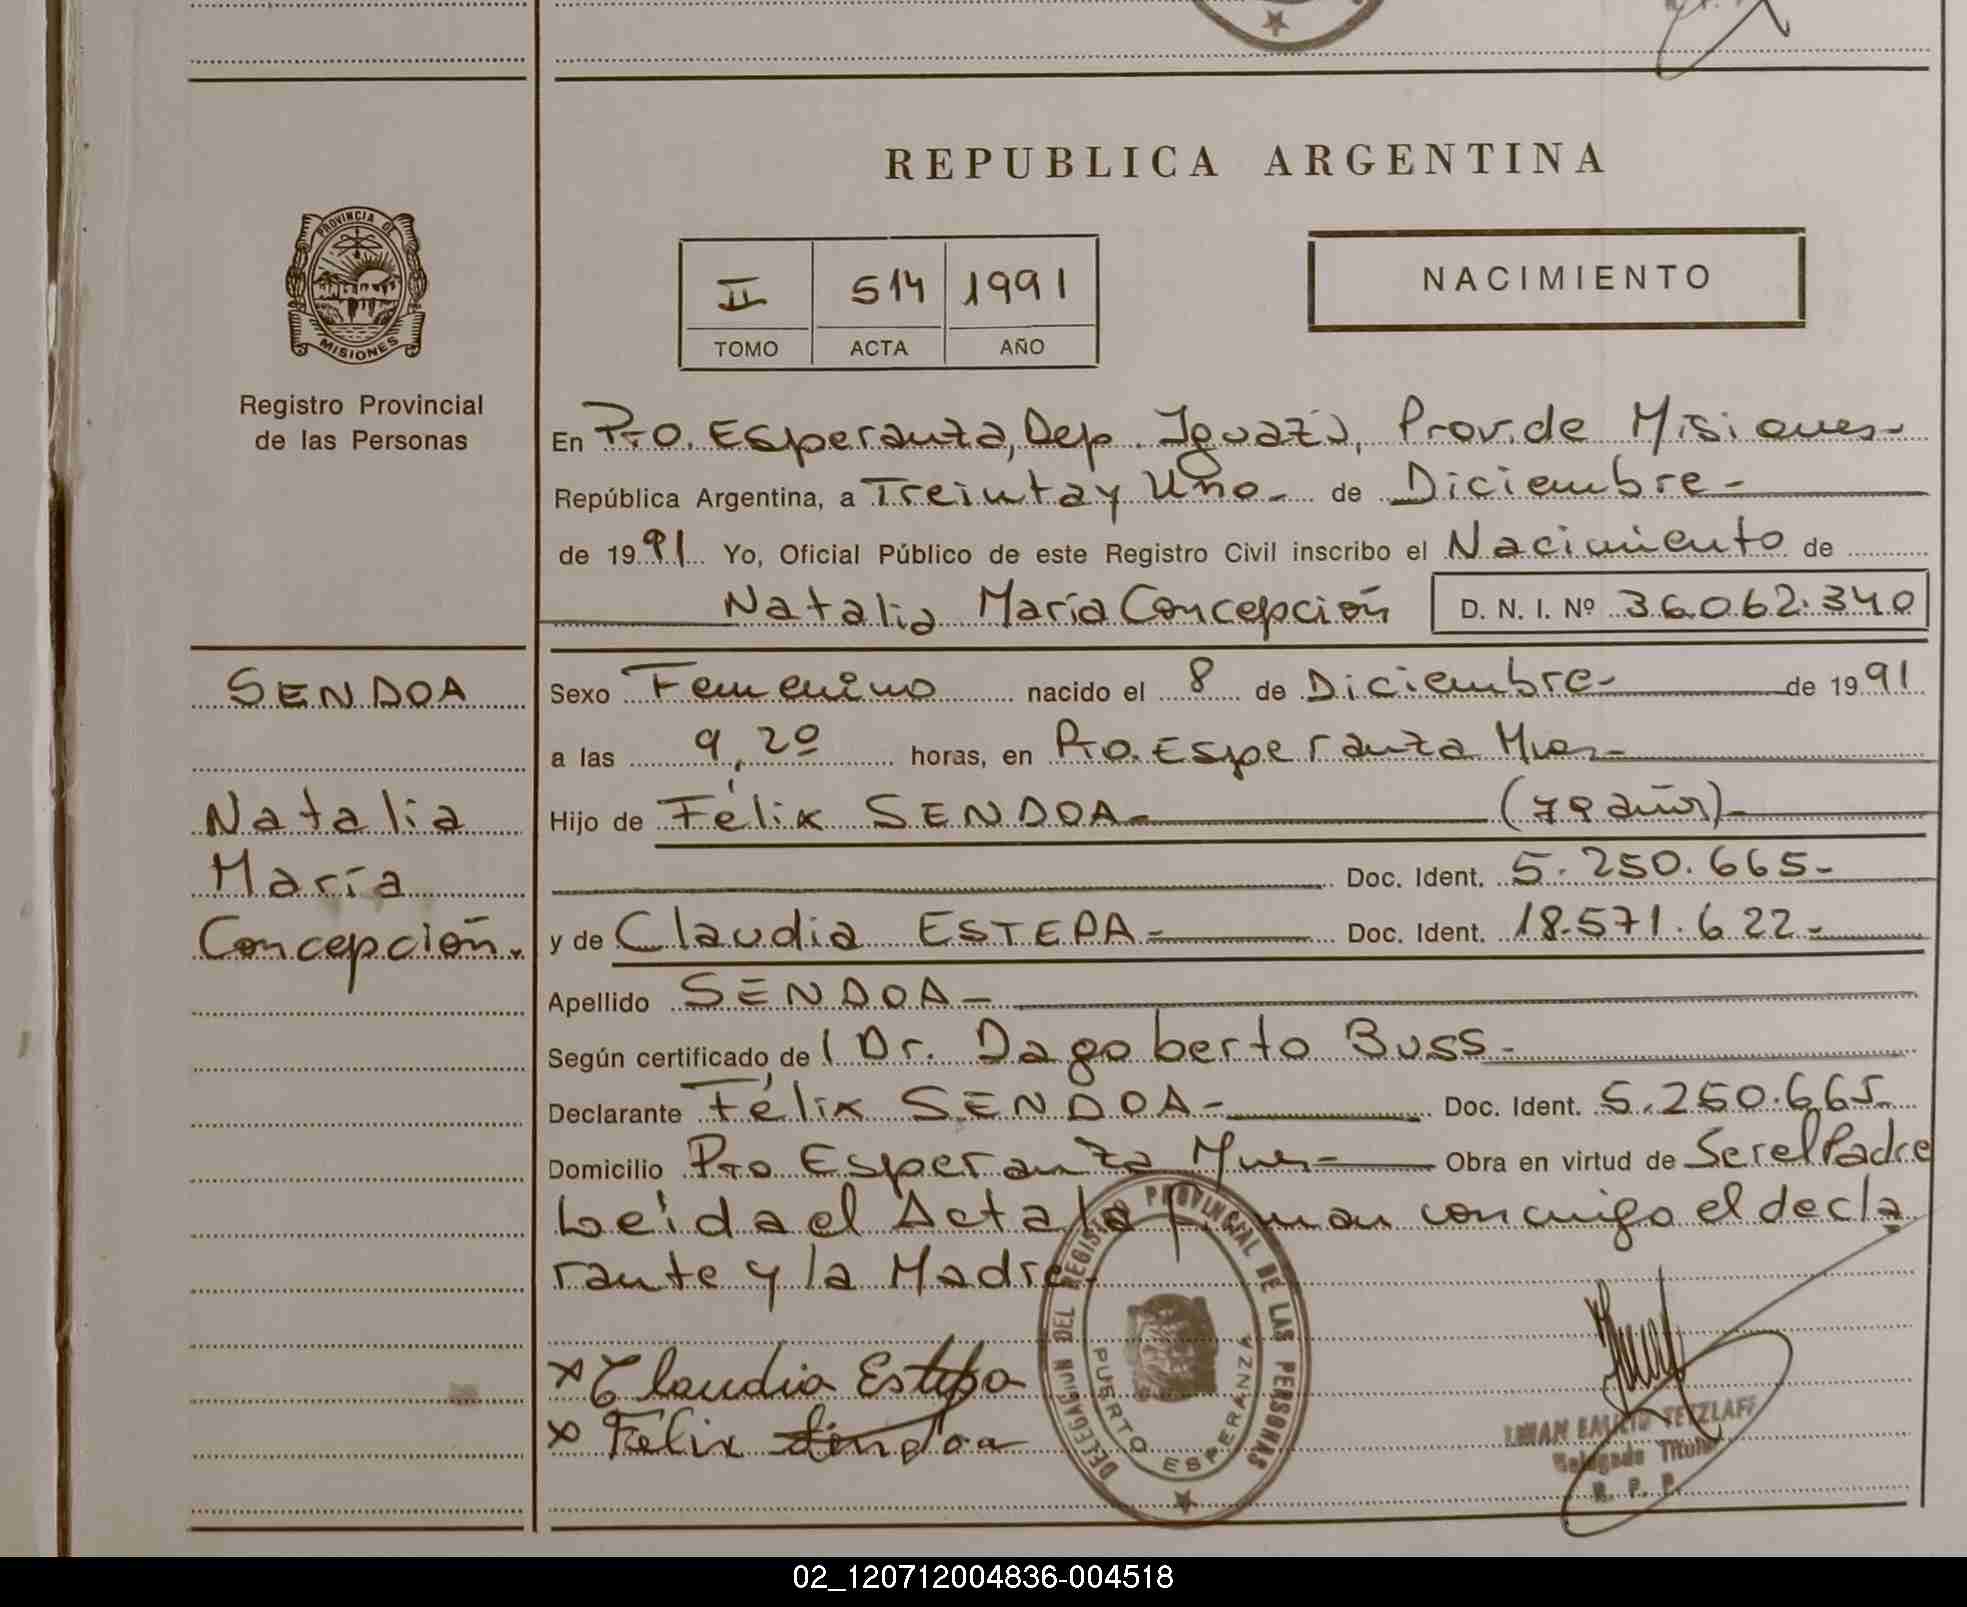 REPUBLICA ARGENTINA
PROVINCIA DE
MISIONES
Registro Provincial
de las Personas
II 514 1991
TOMO ACTA AÑO
NACIMIENTO
En Pto. Esperanza, Dep. Iguazú, Prov. de Misiones-
República Argentina, a Treinta y Uno- de Diciembre-
de 1991 Yo, Oficial Público de este Registro Civil inscribo el Nacimiento de
Natalia María Concepción D. N. I. Nº 36.062.340
SENDOA
Natalia
María
Concepción.
Sexo Femenino nacido el 8 de Diciembre- de 1991
a las 9,20 horas, en Pto. Esperanza Mnes-
Hijo de Félix SENDOA- (79 años)-
Doc. Ident. 5.250.665-
y de Claudia ESTEPA= Doc. Ident. 18.571.622-
Apellido SENDOA-
Según certificado de l Dr. Dagoberto Buss-
Declarante Félix SENDOA- Doc. Ident. 5.250.665-
Domicilio Pto Esperanza Mnes- Obra en virtud de Ser el Padre
Leída el Acta la firman conmigo el decla
rante y la Madre-
x Claudia Estepa
x Felix Sendoa
DELEGACION DEL REGISTRO PROVINCIAL DE LAS PERSONAS
PUERTO ESPERANZA
TETZLAFF
Delegado Titular
R. P. P.
02_120712004836-004518